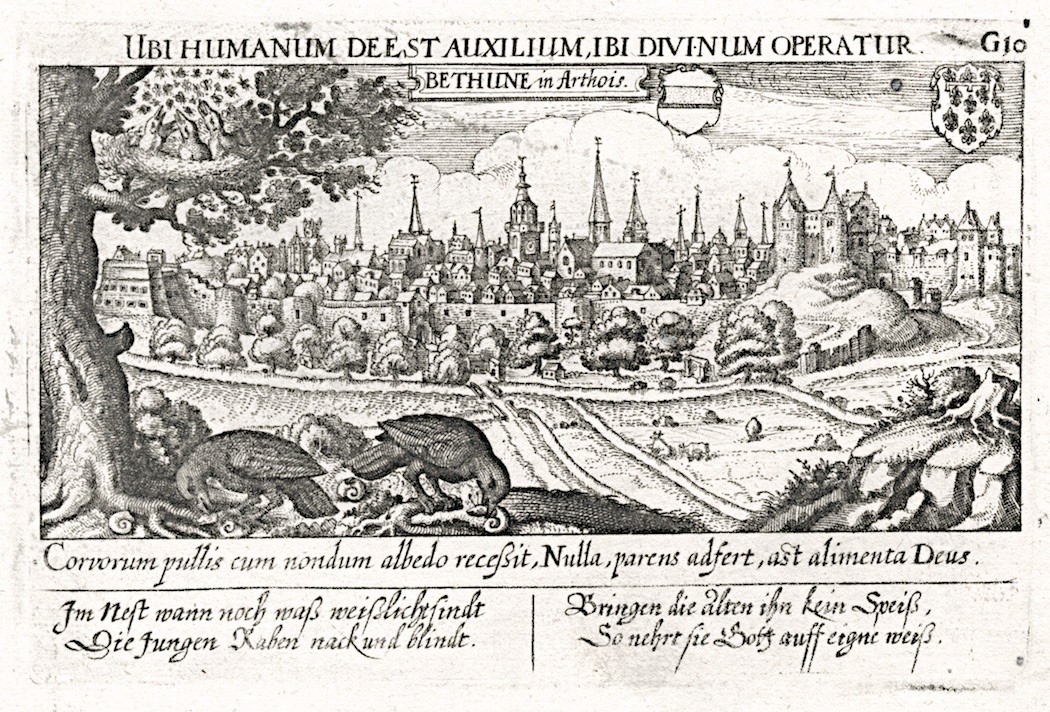 UBI HUMANUM DEEST AUXILIUM, IBI DIVINUM OPERATUR.
G10
BETHUNE in Arthois.
Corvorum pullis cum nondum albedo receßit, Nulla, parens adfert, ast alimenta Deus.
Im Nest wann noch waß weißlicht sindt
Die Jungen Raben nack und blindt.
Bringen die alten ihn kein Speiß,
So nehrt sie Gott auff eigne weiß.